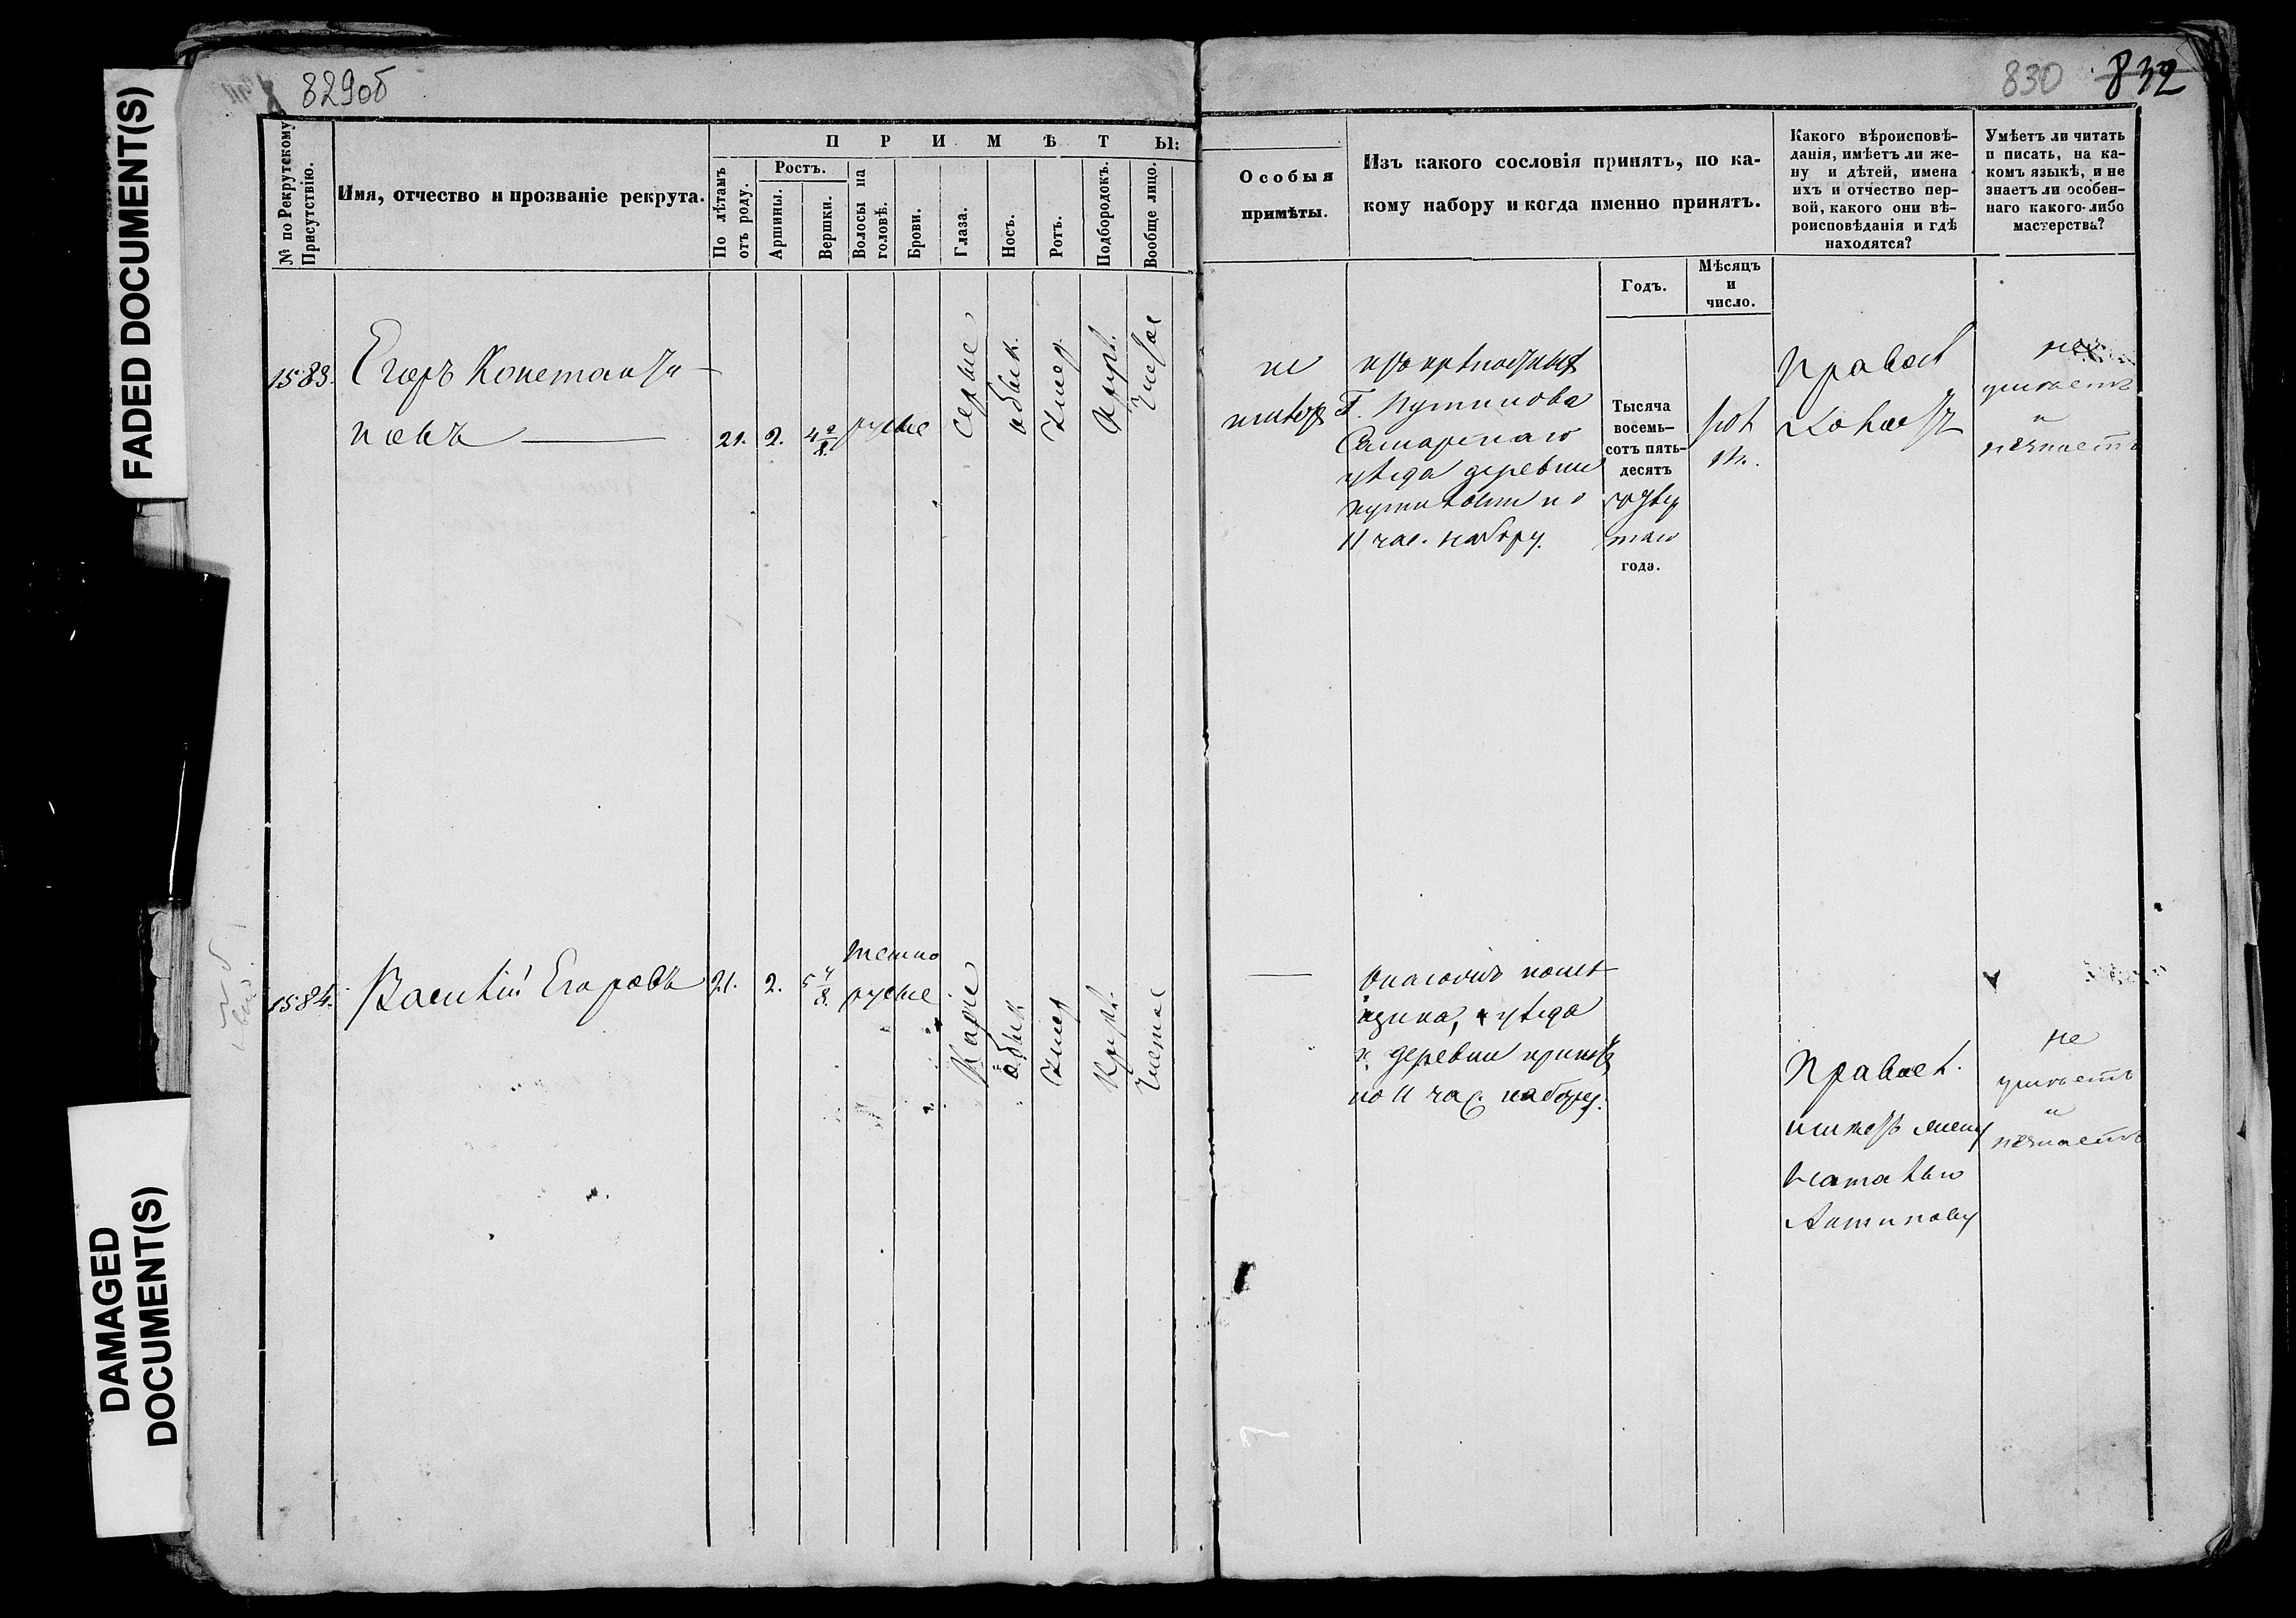 FADED DOCUMENT(S)
DAMAGED
DOCUMENT(S)
829об
№ по Рекрутскому
Присутствію.
Имя, отчество и прозваніе рекрута.
П Р И М Ѣ Т Ы:
По лѣтамъ
отъ роду.
Ростъ.
Аршины.
Вершки.
Волосы на
головѣ.
Брови.
Глаза.
Носъ.
Ротъ.
Подбородокъ.
Вообще лицо.
1583.
Егоръ Константи
новъ
21. 2. 4 2/8. русые
Серые
обык.
Умер.
Кругл.
Чистое
1584.
Василій Егоровъ
21. 2. 5 4/8.
темно
русые
Карие
обык
Умер
Кругл.
Чистое
830 832
Особыя
примѣты.
Изъ какого сословія принятъ, по ка-
кому набору и когда именно принятъ.
Годъ.
Мѣсяцъ
и
число.
Какого вѣроисповѣ-
данія, имѣетъ ли же-
ну и дѣтей, имена
ихъ и отчество пер-
вой, какого они вѣ-
роисповѣданія и гдѣ
находятся?
Умѣетъ ли читать
и писать, на ка-
комъ языкѣ, и не
знаетъ ли особен-
наго какого-либо
мастерства?
не
имѣетъ
изъ крѣпостныхъ
Г. Путилова
Самарскаго
уѣзда деревни
Путиловки по
11 час. набору.
Тысяча
восемь-
сотъ пять-
десятъ
четвер
таго
года.
Правос
Холостъ
не
умѣетъ
и
незнаетъ
помѣ
щика, уѣзда
и деревни принятъ
по 11 час. набору.
Правосл.
имѣетъ жену
Наталью
Антипову
не
умѣетъ
и
незнаетъ